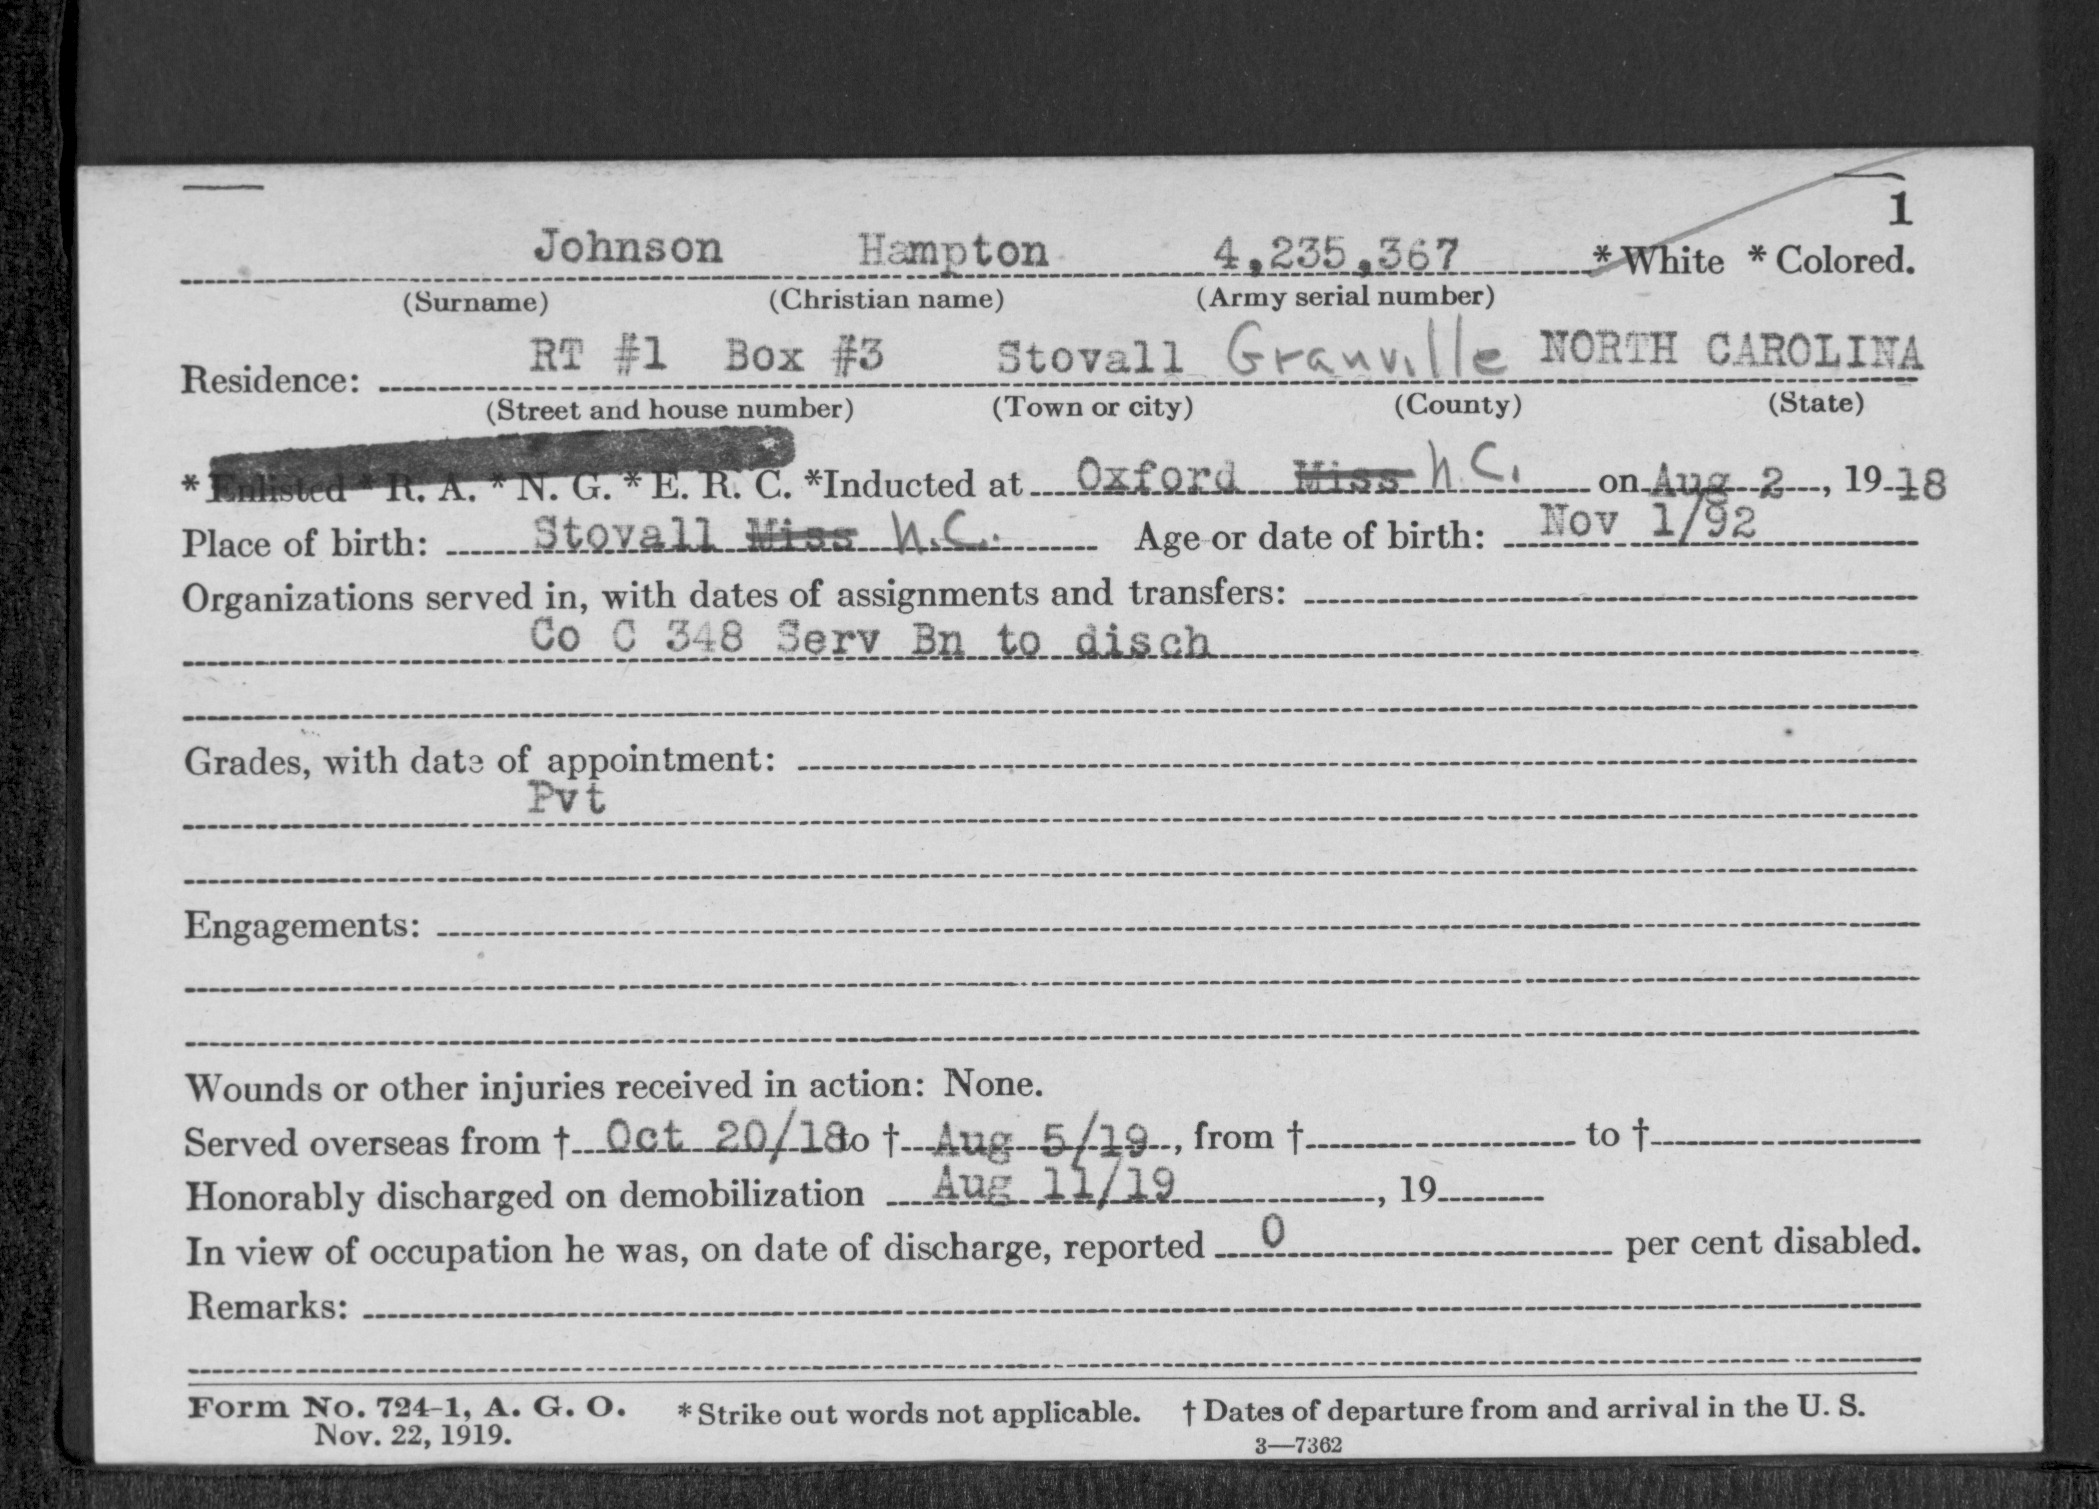 1
Johnson Hampton 4,235,367 * White * Colored.
(Surname) (Christian name) (Army serial number)
Residence: RT #1 Box #3 Stovall Granville NORTH CAROLINA
(Street and house number) (Town or city) (County) (State)
* Enlisted * R. A. * N. G. * E. R. C. *Inducted at Oxford Miss N.C. on Aug 2, 1918
Place of birth: Stovall Miss N.C. Age or date of birth: Nov 1/92
Organizations served in, with dates of assignments and transfers:
Co C 348 Serv Bn to disch
Grades, with date of appointment:
Pvt
Engagements:
Wounds or other injuries received in action: None.
Served overseas from † Oct 20/18 to † Aug 5/19, from † to †
Honorably discharged on demobilization Aug 11/19, 19
In view of occupation he was, on date of discharge, reported 0 per cent disabled.
Remarks:
Form No. 724-1, A. G. O. * Strike out words not applicable. † Dates of departure from and arrival in the U. S.
Nov. 22, 1919. 3—7362